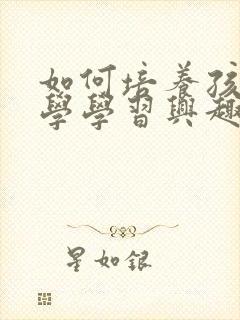 如何培養孩
學學習興趣
星如銀